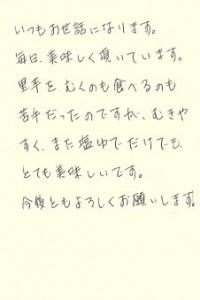 いつもお世話になります。
毎日、美味しく頂いています。
里芋を、むくのも食べるのも
苦手だったのですが、むきや
すく、また塩ゆでだけでも、
とても美味しいです。
今後ともよろしくお願いします。